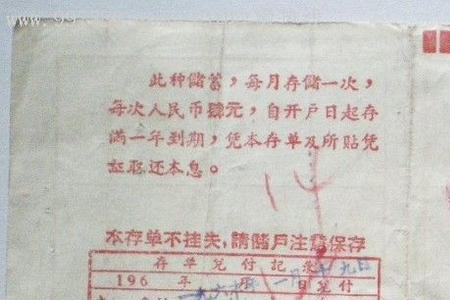 此种储蓄，每月存储一次，
每次人民币肆元，自开户日起存
满一年到期，凭本存单及所贴凭
证取还本息。
14
本存单不挂失，請储户注意保存
存单兑付記录
196 年 月 日兑付